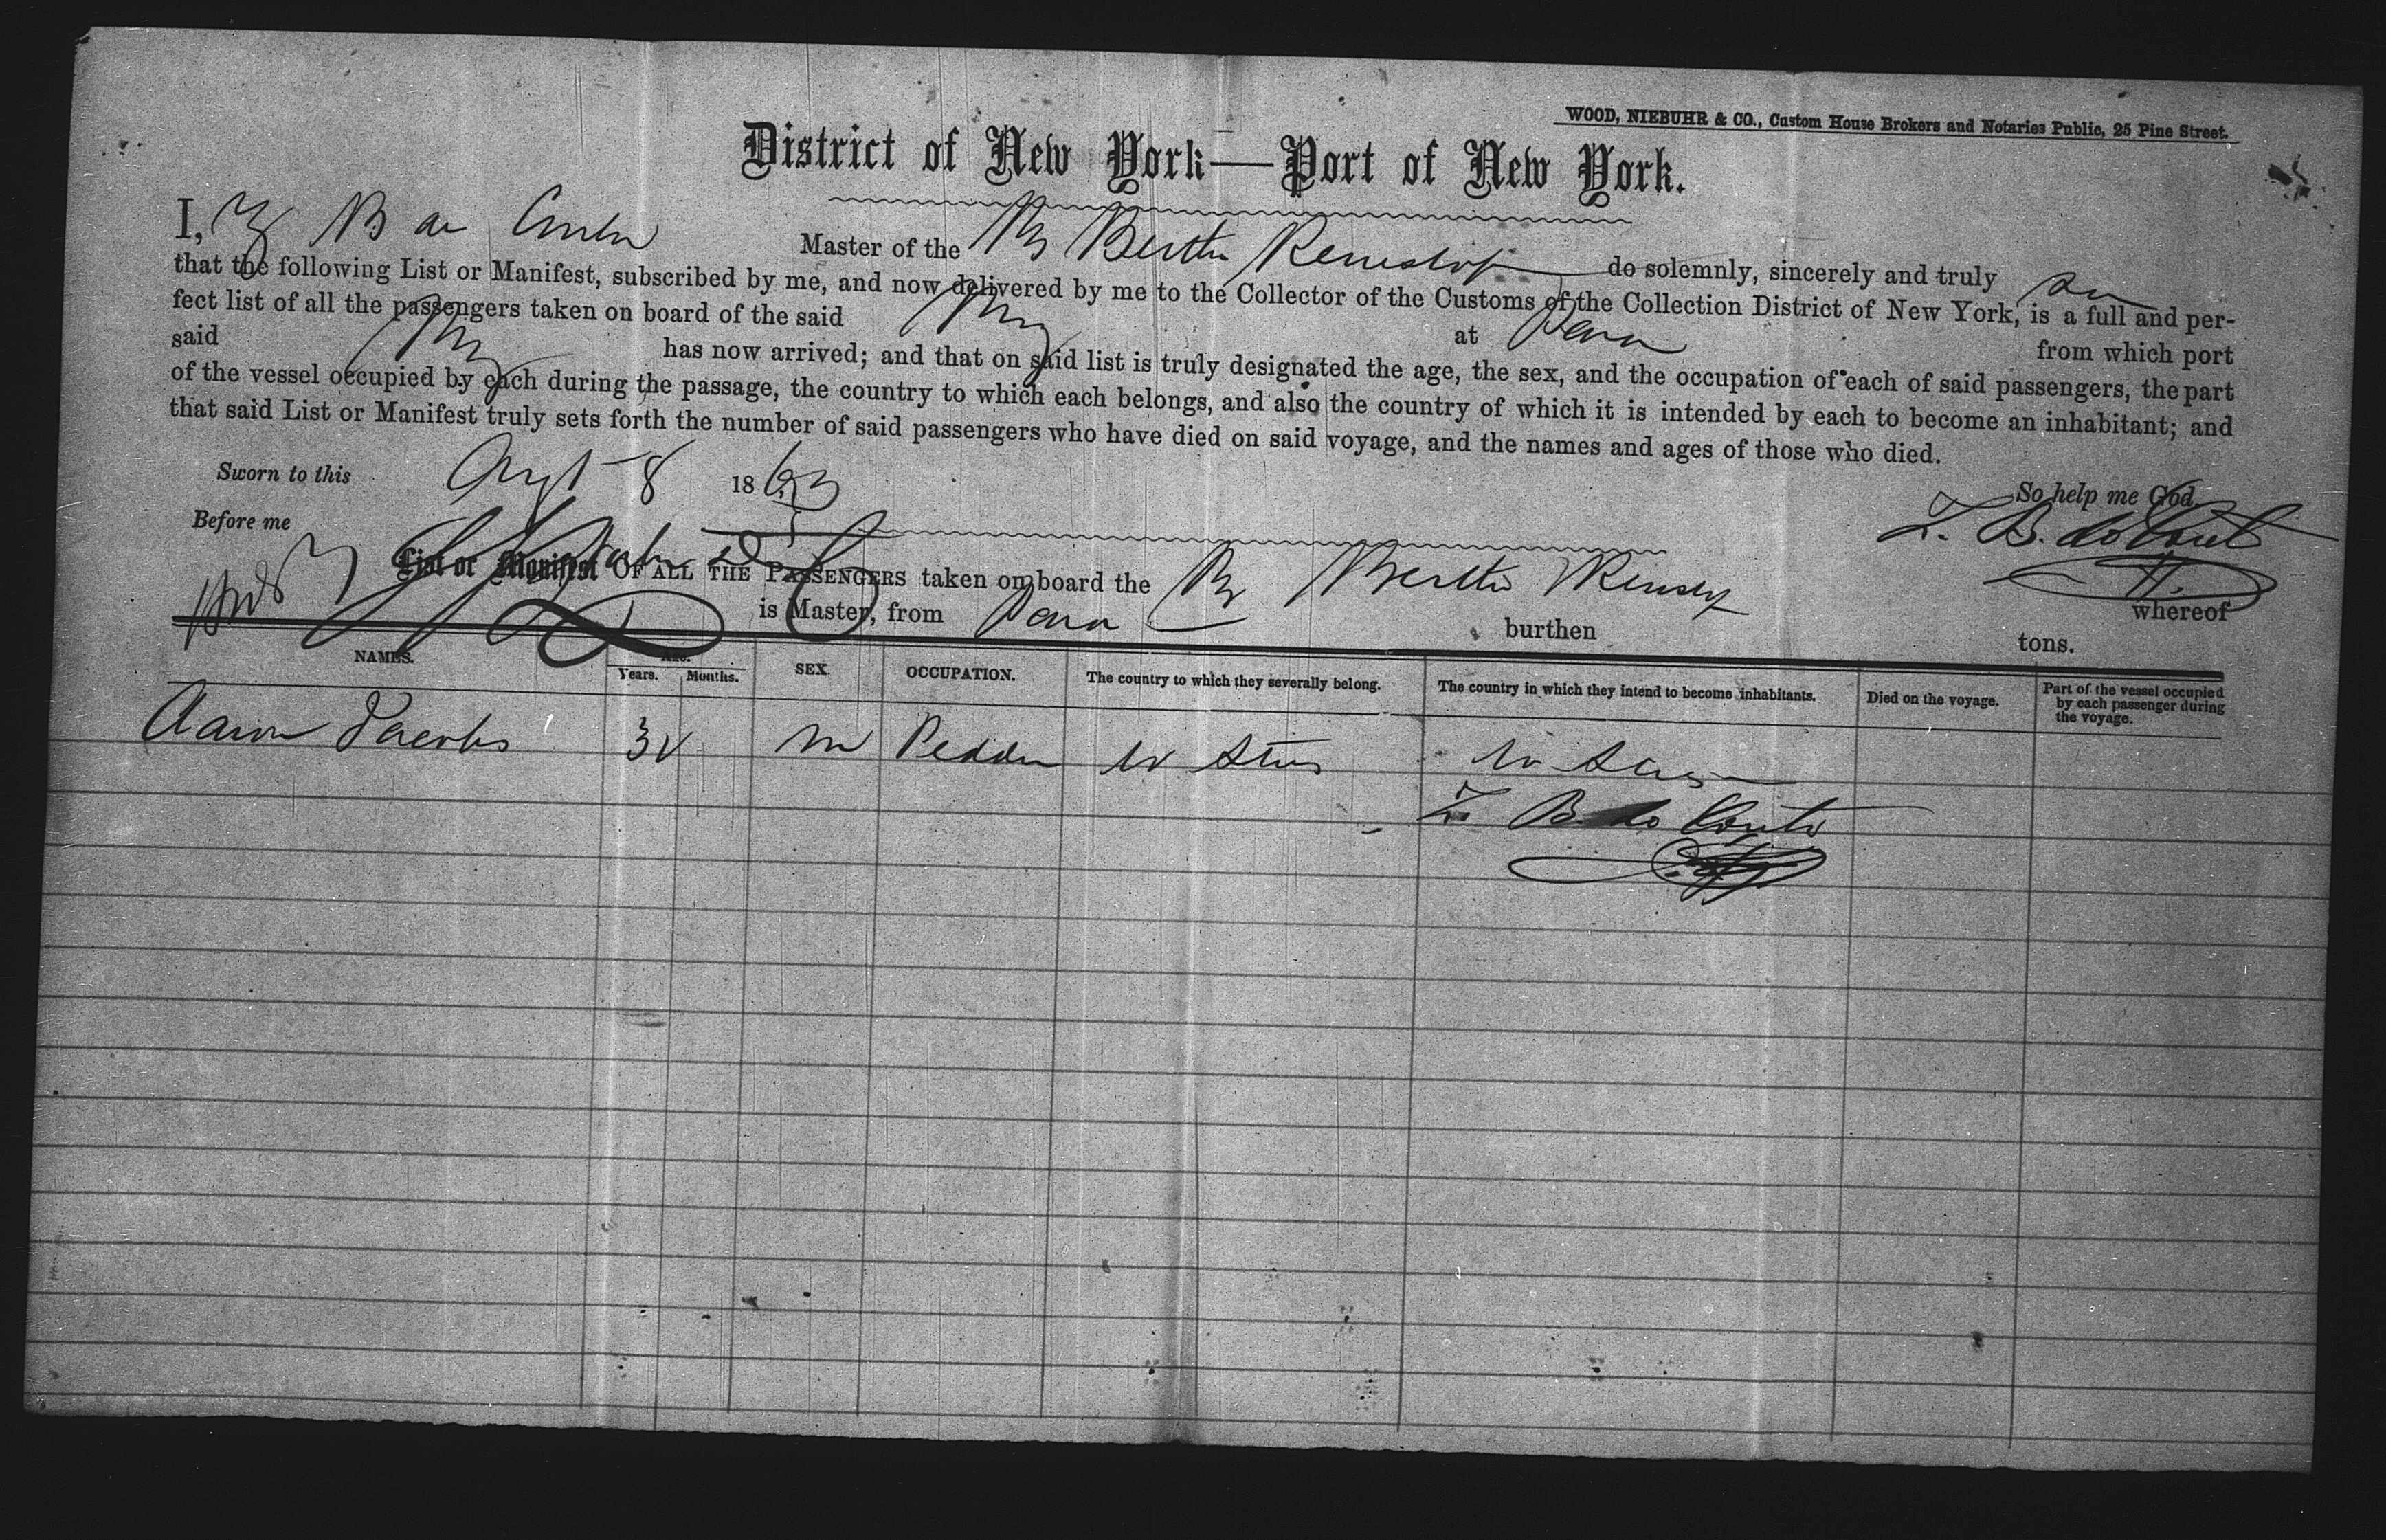 WOOD, NIEBUHR & CO., Custom House Brokers and Notaries Public, 25 Pine Street.
District of New York—Port of New York.
I, Z B Master of the Br Bertha do solemnly, sincerely and truly
that the following List or Manifest, subscribed by me, and now delivered by me to the Collector of the Customs of the Collection District of New York, is a full and per-
fect list of all the passengers taken on board of the said Brig at Para from which port
said Brig has now arrived; and that on said list is truly designated the age, the sex, and the occupation of each of said passengers, the part
of the vessel occupied by each during the passage, the country to which each belongs, and also the country of which it is intended by each to become an inhabitant; and
that said List or Manifest truly sets forth the number of said passengers who have died on said voyage, and the names and ages of those who died.
Sworn to this Augt 8 1863 So help me God,
Before me Z. B. do Couto
List or Manifest OF ALL THE PASSENGERS taken on board the Br Bertha whereof
is Master, from Para burthen tons.
NAMES. AGE. Years. Months. SEX. OCCUPATION. The country to which they severally belong. The country in which they intend to become inhabitants. Died on the voyage. Part of the vessel occupied by each passenger during the voyage.
Aaron Jacobs 32 m Peddler U States U States
Z. B. do Couto